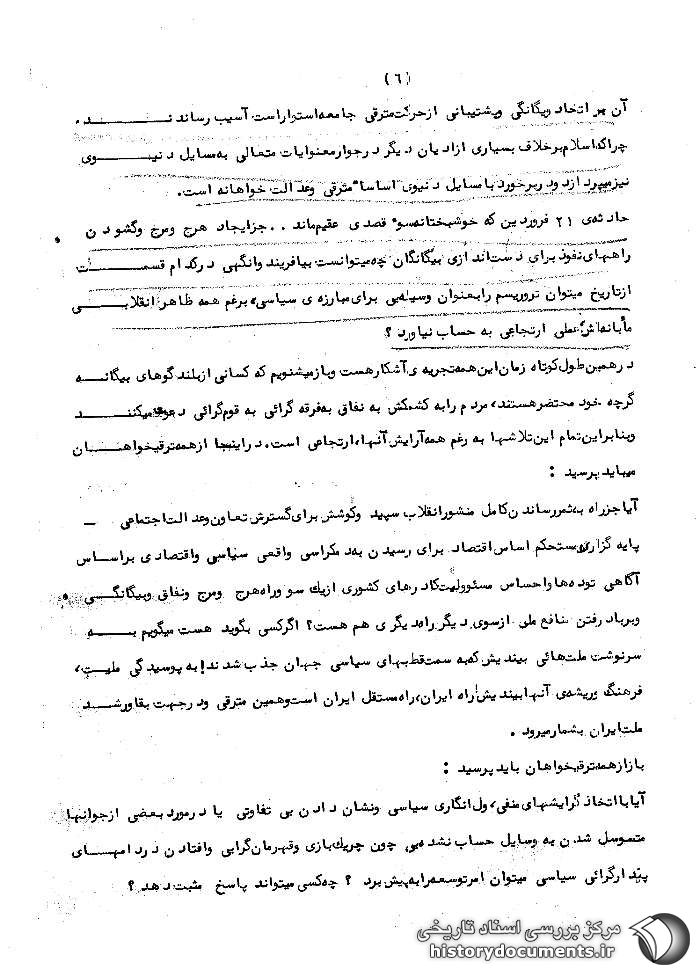 (٦)
آن بر اتحاد ویگانگی وپشتیبانی ازحرکت مترقی جامعه استواراست آسیب رسانند.
چراکه اسلام برخلاف بسیاری ازادیان دیگر درجوارمعنوایات متعالی به مسایل دنیوی
نیزمیپردازد ودربرخورد با مسایل دنیوی اساسا" مترقی وعدالت خواهانه است.
حادثه‌ی ۲۱ فروردین که خوشبختانه سوء قصدی عقیم ماند .. جزایجاد هرج ومرج وگشودن
راههای نفوذ برای دست‌اندازی بیگانگان چه میتوانست بیافریند وانگهی درکدام قسمت
ازتاریخ میتوان تروریسم رابعنوان وسیله‌یی برای مبارزه‌ی سیاسی، برغم همه ظاهر انقلابی
مآبانه‌اش عملی ارتجاعی به حساب نیاورد؟
درهمین طول کوتاه زمان این همه تجربه‌ی آشکارهست وبازمیشنویم که کسانی ازبلندگوهای بیگانه
گرچه خود محتضرهستند، مردم رابه کشمکش به نفاق به فرقه گرائی به قوم گرائی دعوت میکنند
وبنابراین تمام این تلاشها به رغم همه آرایش آنها، ارتجاعی است. دراینجا ازهمه ترقیخواهان
میباید پرسید :
آیا جزراه به ثمررساندن کامل منشورانقلاب سپید وکوشش برای گسترش تعاون وعدالت اجتماعی –
پایه گزاری مستحکم اساس اقتصاد برای رسیدن به دمکراسی واقعی سیاسی واقتصادی براساس
آگاهی توده‌ها واحساس مسئوولیت کادرهای کشوری ازیک سو وراه هرج ومرج ونفاق وبیگانگی
وبرباد رفتن منافع ملی ازسوی دیگر راه دیگری هم هست؟ اگرکسی بگوید هست میگویم به
سرنوشت ملت‌هائی بیندیش که به سمت قطبهای سیاسی جهان جذب شدند! به پوسیدگی ملیت،
فرهنگ وریشه‌ی آنها بیندیش! راه ایران، راه مستقل ایران است وهمین مترقی ودرجهت بقاورشد
ملت ایران بشمارمیرود .
بازازهمه ترقیخواهان باید پرسید :
آیا با اتخاذ گرایشهای منفی، ول انگاری سیاسی ونشان دادن بی تفاوتی یا درمورد بعضی ازجوانها
متوسل شدن به وسایل حساب نشده‌یی چون چریک بازی وقهرمان گرایی وافتادن دردامهای
پندارگرائی سیاسی میتوان امرتوسعه رابه پیش برد ؟ چه کسی میتواند پاسخ مثبت دهد؟
مرکز بررسی اسناد تاریخی
historydocuments.ir